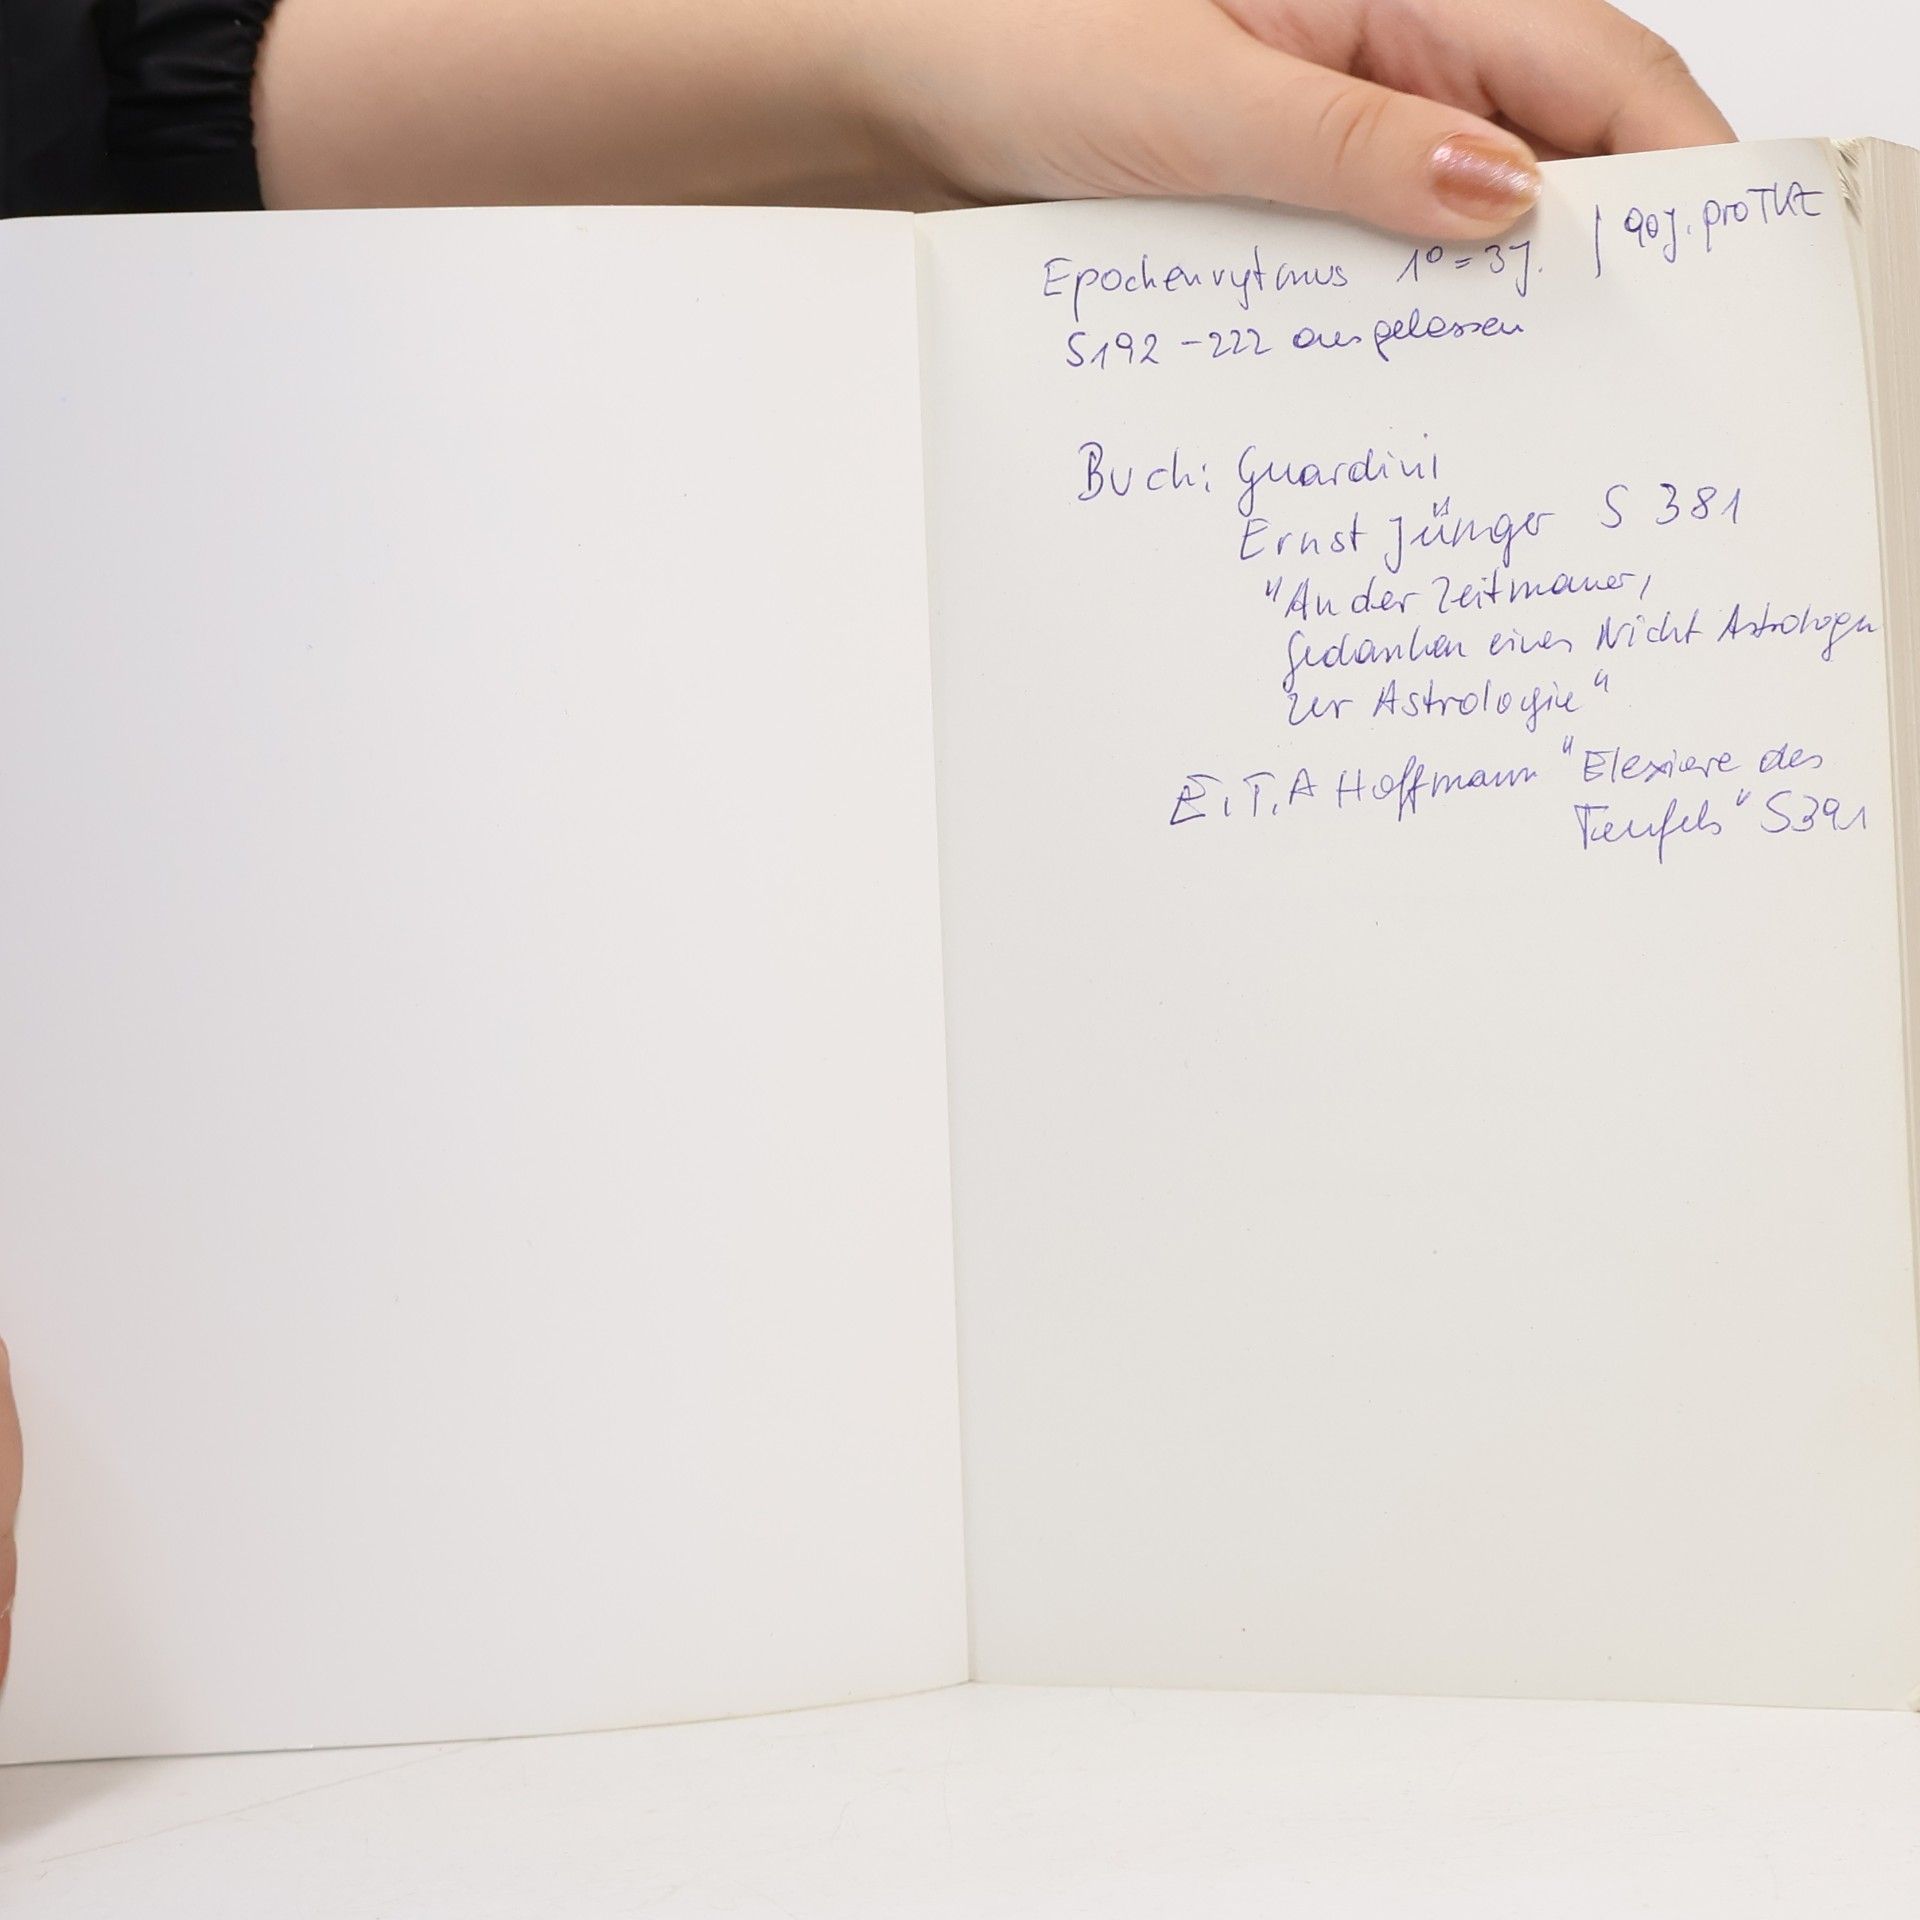 Epochenrytmus 1° = 3J. | 90J. pro TKZ
S192 - 222 ausgelassen
Buch: Guardini
Ernst Jünger S 381
"An der Zeitmauer,
Gedanken eines Nicht Astrologen
zur Astrologie"
E.T.A Hoffmann "Elexiere des
Teufels" S391